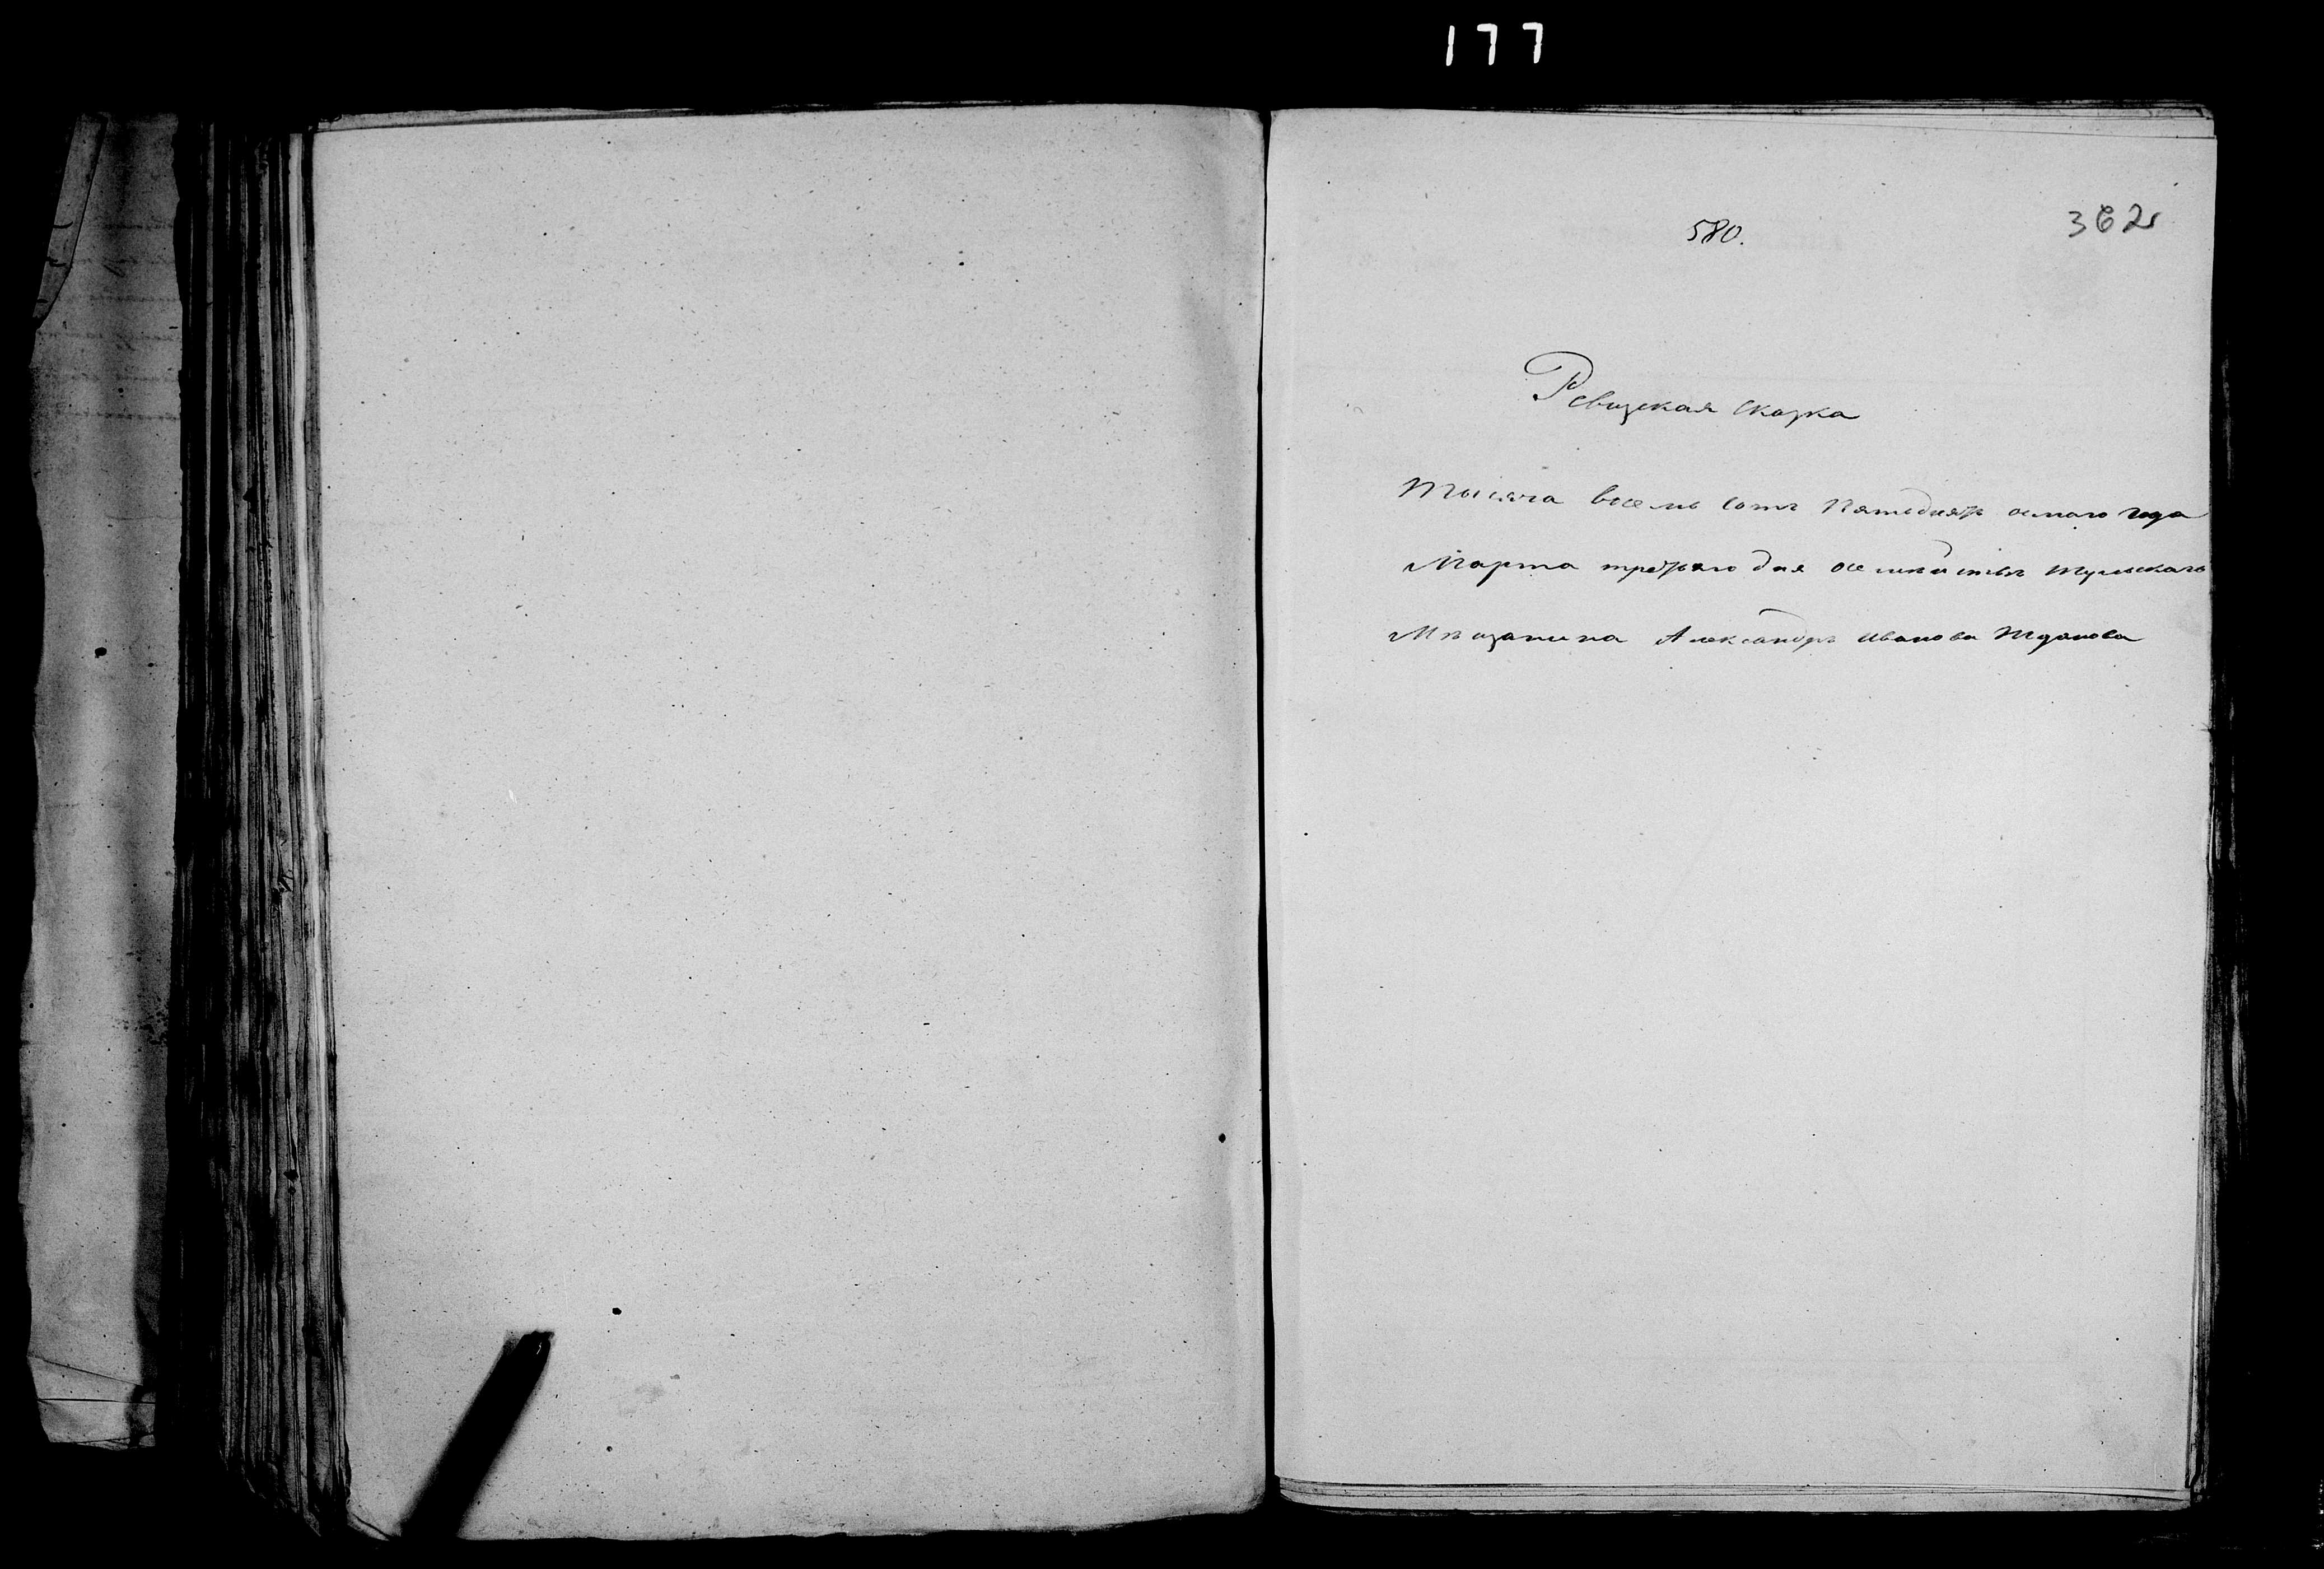 177
362
580.
Ревизская Сказка
Тысяча восемь сотъ Пятьдесятъ осмаго года
Марта третьяго дня Тульскаго
Мѣщанина Александръ Иванова Жданова